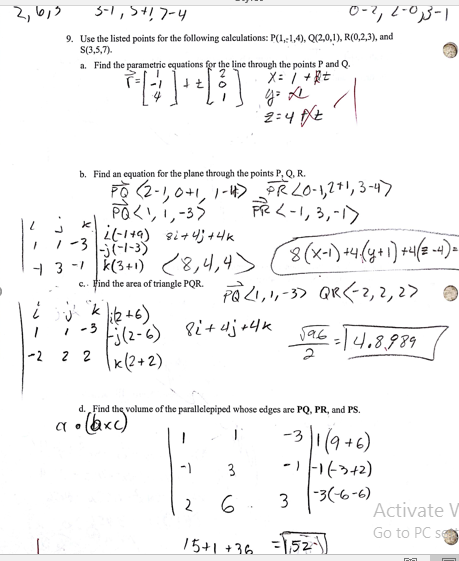 2, 6, 3 3-1, 5+1, 7-4 0-2, 2-0, 3-1
9. Use the listed points for the following calculations: P(1,-1,4), Q(2,0,1), R(0,2,3), and
S(3,5,7).
a. Find the parametric equations for the line through the points P and Q.
r = [1 -1 4] + t [2 0 1]
x = 1 + 2t
y = -1
z = 4 + t
b. Find an equation for the plane through the points P, Q, R.
PQ <2-1, 0+1, 1-4> PR <0-1, 2+1, 3-4>
PQ <1, 1, -3> PR <-1, 3, -1>
i j k i(-1+9) 8i+4j+4k
1 1 -3 -j(-1-3)
-1 3 -1 k(3+1) <8,4,4> 8(x-1)+4(y+1)+4(z-4)=
c. Find the area of triangle PQR.
PQ <1, 1, -3> QR <-2, 2, 2>
i j k i(2+6)
1 1 -3 -j(2-6) 8i+4j+4k √96/2 = 4.8989
-2 2 2 k(2+2)
d. Find the volume of the parallelepiped whose edges are PQ, PR, and PS.
a • (bxc)
1 1 -3 1(9+6)
-1 3 -1 -1(-3+2)
2 6 3 -3(-6-6)
15+1+36 = 52
Activate
Go to PC